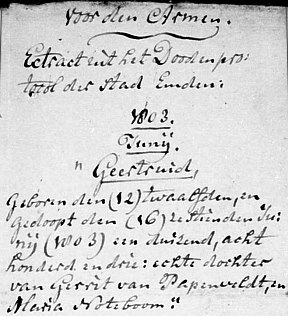 Voor den Armen.
Extract uit het Doodenpro=
tocol der Stad Emden:
1803.
Junij.
" Geertruid,
Geboren den (12) twaalfden, en
gedoopt den (16) zestienden Ju=
nij (1803) een duizend, acht
honderd en drie: echte dochter
van Gerrit van Papenveldt, en
Maria Noteboom:"